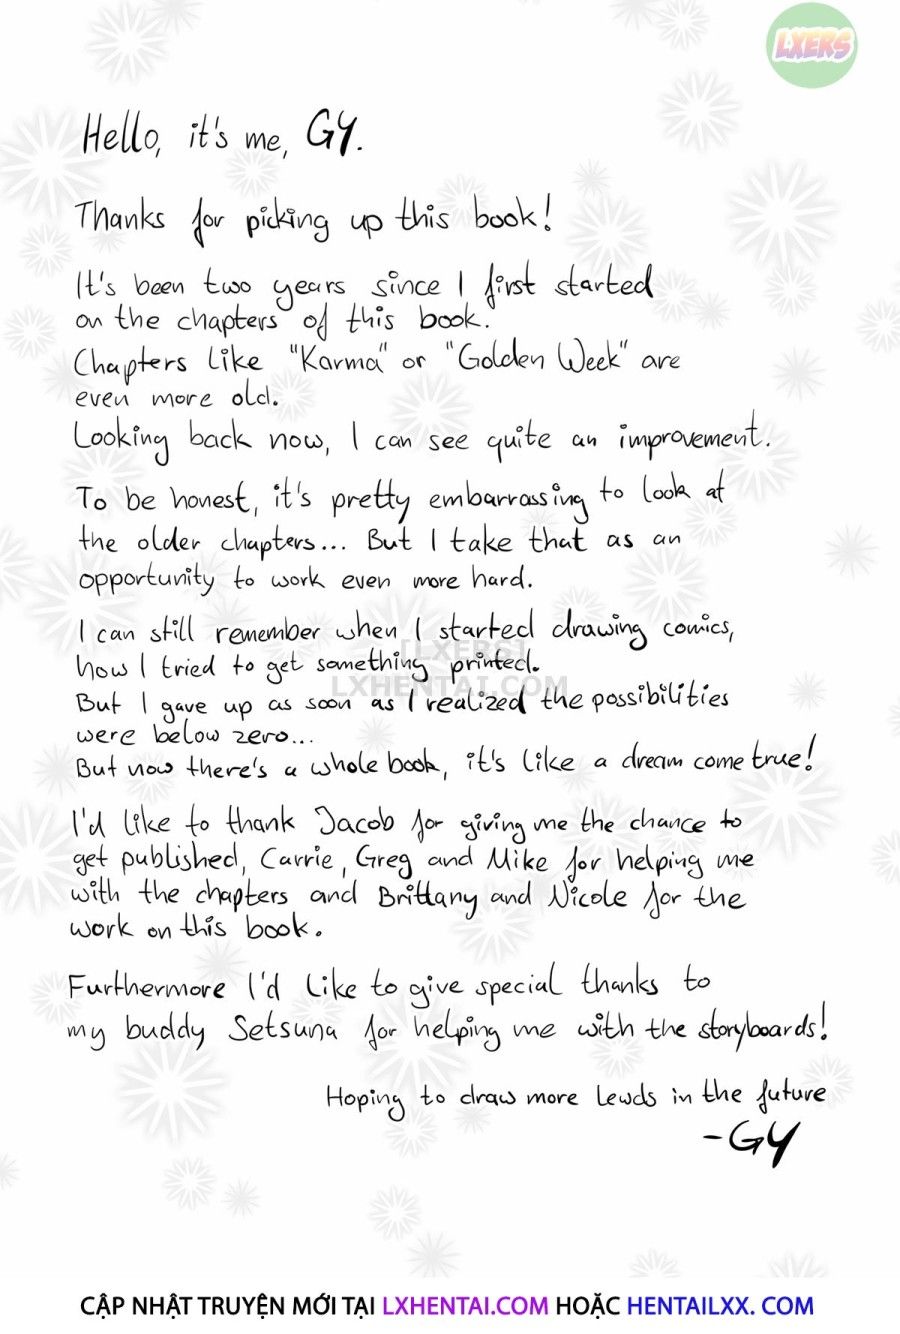 LXERS
Hello, it's me, GY.
Thanks for picking up this book!
It's been two years since I first started
on the chapters of this book.
Chapters like "Karma" or "Golden Week" are
even more old.
Looking back now, I can see quite an improvement.
To be honest, it's pretty embarrassing to look at
the older chapters... But I take that as an
opportunity to work even more hard.
I can still remember when I started drawing comics,
how I tried to get something printed.
[LXERS]
LXHENTAI.COM
But I gave up as soon as I realized the possibilities
were below zero...
But now there's a whole book, it's like a dream come true!
I'd like to thank Jacob for giving me the chance to
get published, Carrie, Greg and Mike for helping me
with the chapters and Brittany and Nicole for the
work on this book.
Furthermore I'd like to give special thanks to
my buddy Setsuna for helping me with the storyboards!
Hoping to draw more lewds in the future
-GY
CẬP NHẬT TRUYỆN MỚI TẠI LXHENTAI.COM HOẶC HENTAILXX. COM